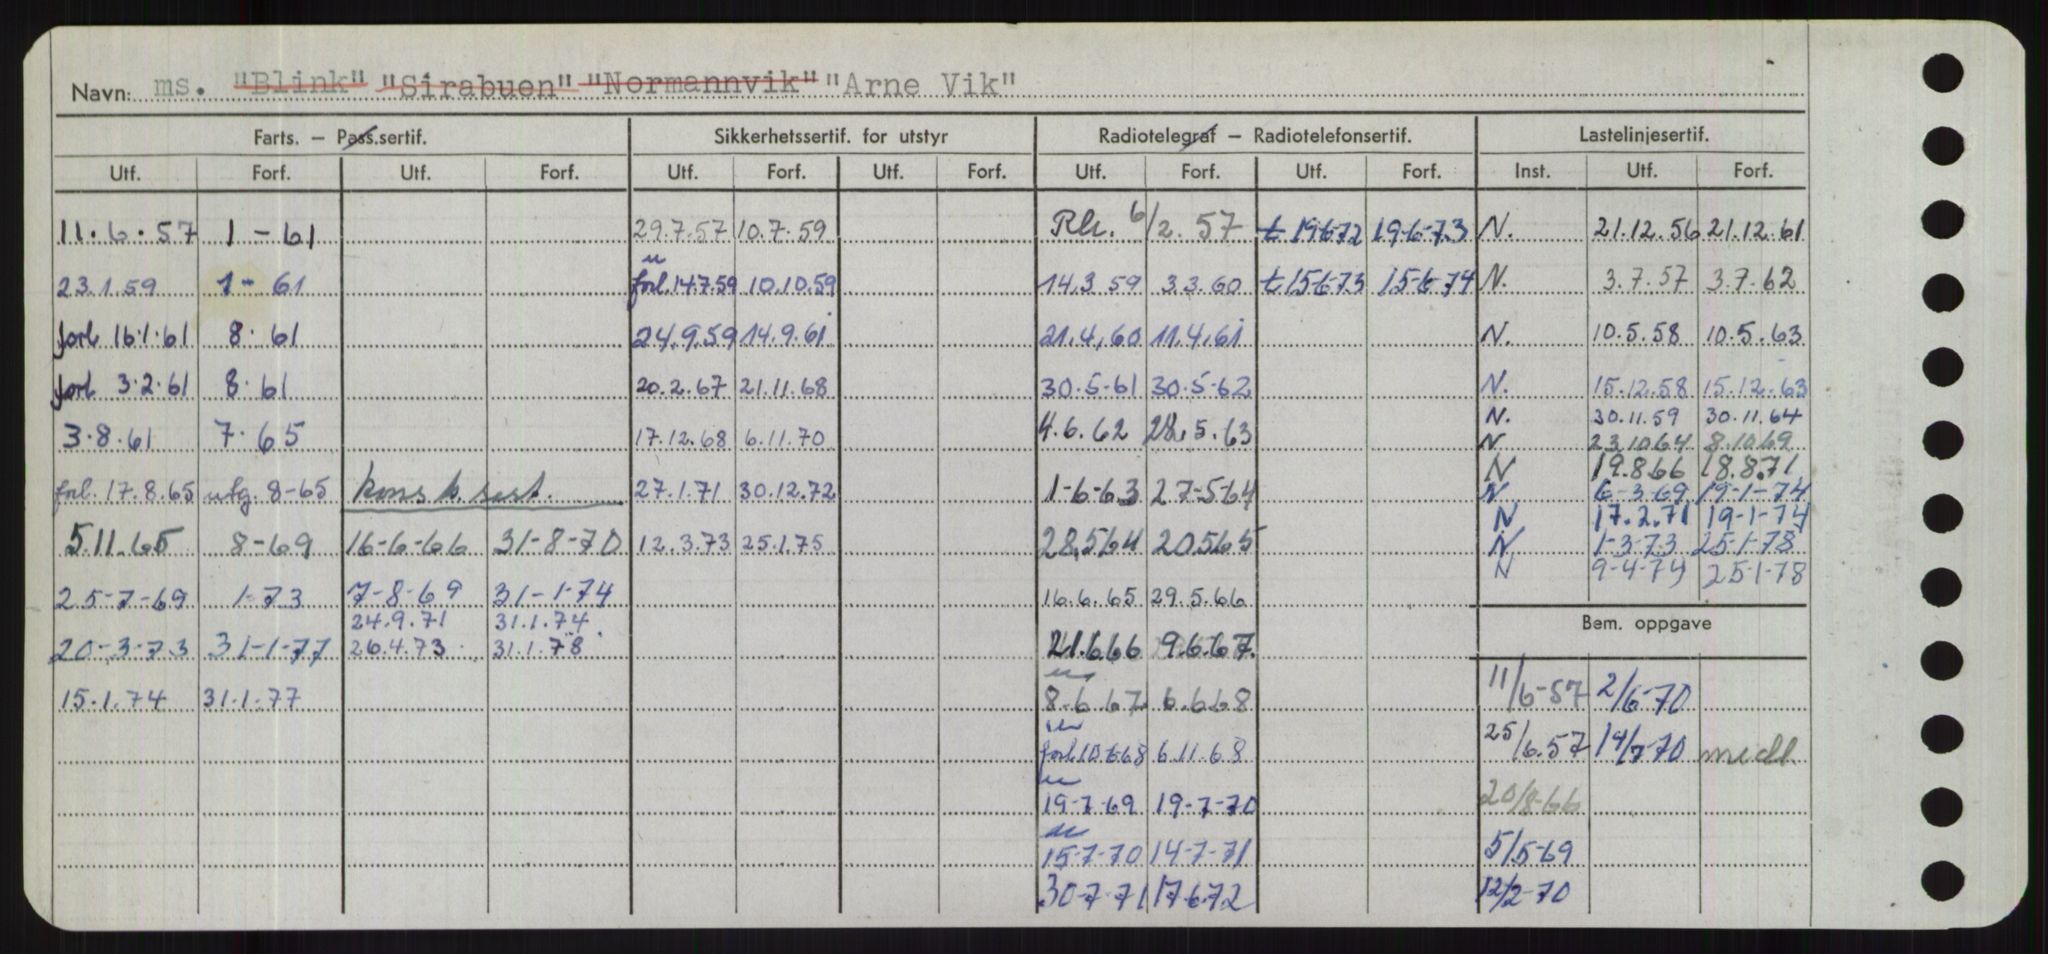 Navn: ms. "Blink" "Sirabuen" "Normannvik" "Arne Vik"
Farts. — Pass.sertif. Sikkerhetssertif. for utstyr Radiotelegraf — Radiotelefonsertif. Lastelinjesertif.
Utf. Forf. Utf. Forf. Utf. Forf. Utf. Forf. Utf. Forf. Utf. Forf. Inst. Utf. Forf.
11.6.57 1-61 29.7.57 10.7.59 Rk. 6/2.57 t 19-6-72 19-6-73 N. 21.12.56 21.12.61
23.1.59 1-61 forl. 14.7.59 10.10.59 14.3.59 3.3.60 t 15-6-73 15-6-74 N. 3.7.57 3.7.62
forl 16.1.61 8.61 24.9.59 14.9.61 21.4.60 11.4.61 N. 10.5.58 10.5.63
forl 3.2.61 8.61 20.2.67 21.11.68 30.5-61 30.5-62 N. 15.12.58 15.12.63
N. 30.11.59 30.11.64
3.8.61 7.65 17.12.68 6.11.70 4.6.62 28.5.63 N 23.10.64 8.10.69
N 19.8.66 18.8.71
forl. 17.8.65 utg. 8-65 kons.b.sert. 27.1.71 30.12.72 1-6-63 27-5-64 N 6-3-69 19-1-74
N 17.2.71 19-1-74
5.11.65 8-69 16-6-66 31-8-70 12.3.73 25.1.75 28.5.64 20.5.65 N 1-3-73 25-1-78
N 9-4-74 25-1-78
25-7-69 1-73 7-8-69 31-1-74 16.6.65 29.5.66
24.9.71 31.1.74
Bem. oppgave
20-3-73 31-1-77 26.4.73 31.1.78 21.6.66 9.6.67
15.1.74 31.1.77 8.6.67 6.6.68 11/6-57 2/6-70
forl. 10.6.68 6.11.68 25/6.57 14/7-70 medl.
19-7-69 19-7-70 20/8-66
15-7-70 14-7-71 5/5-69
30-7-71 17.6.72 12/2-70